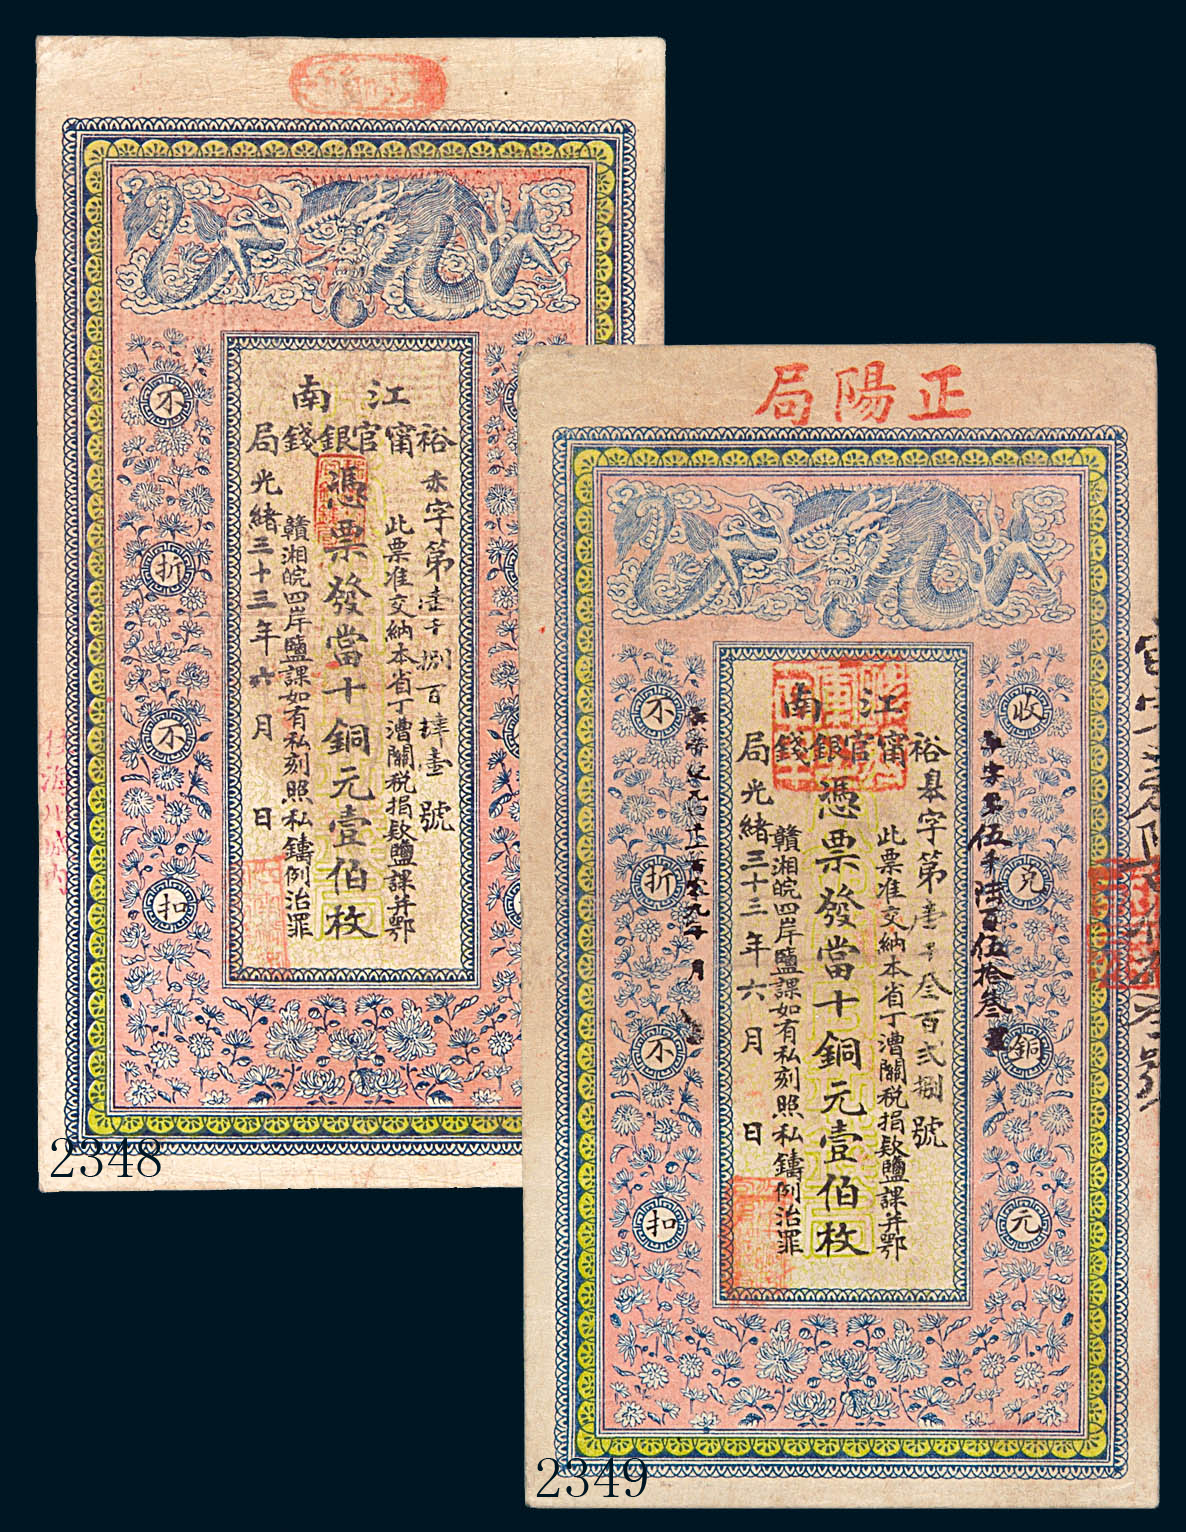 江南
裕甯官銀錢局
赤字第壹千捌百肆壹號
此票准交納本省丁漕關稅捐欵鹽課并鄂
憑票發當十銅元壹伯枚
贛湘皖四岸鹽課如有私刻照私鑄例治罪
光緒三十三年六月日
不折不扣
2348
正陽局
江南
裕甯官銀錢局
字第壹千叁百弍捌號
此票准交納本省丁漕關稅捐欵鹽課并鄂
憑票發當十銅元壹伯枚
贛湘皖四岸鹽課如有私刻照私鑄例治罪
光緒三十三年六月日
收兌銅元
不折不扣
伍千陸百伍拾叁
月
2349